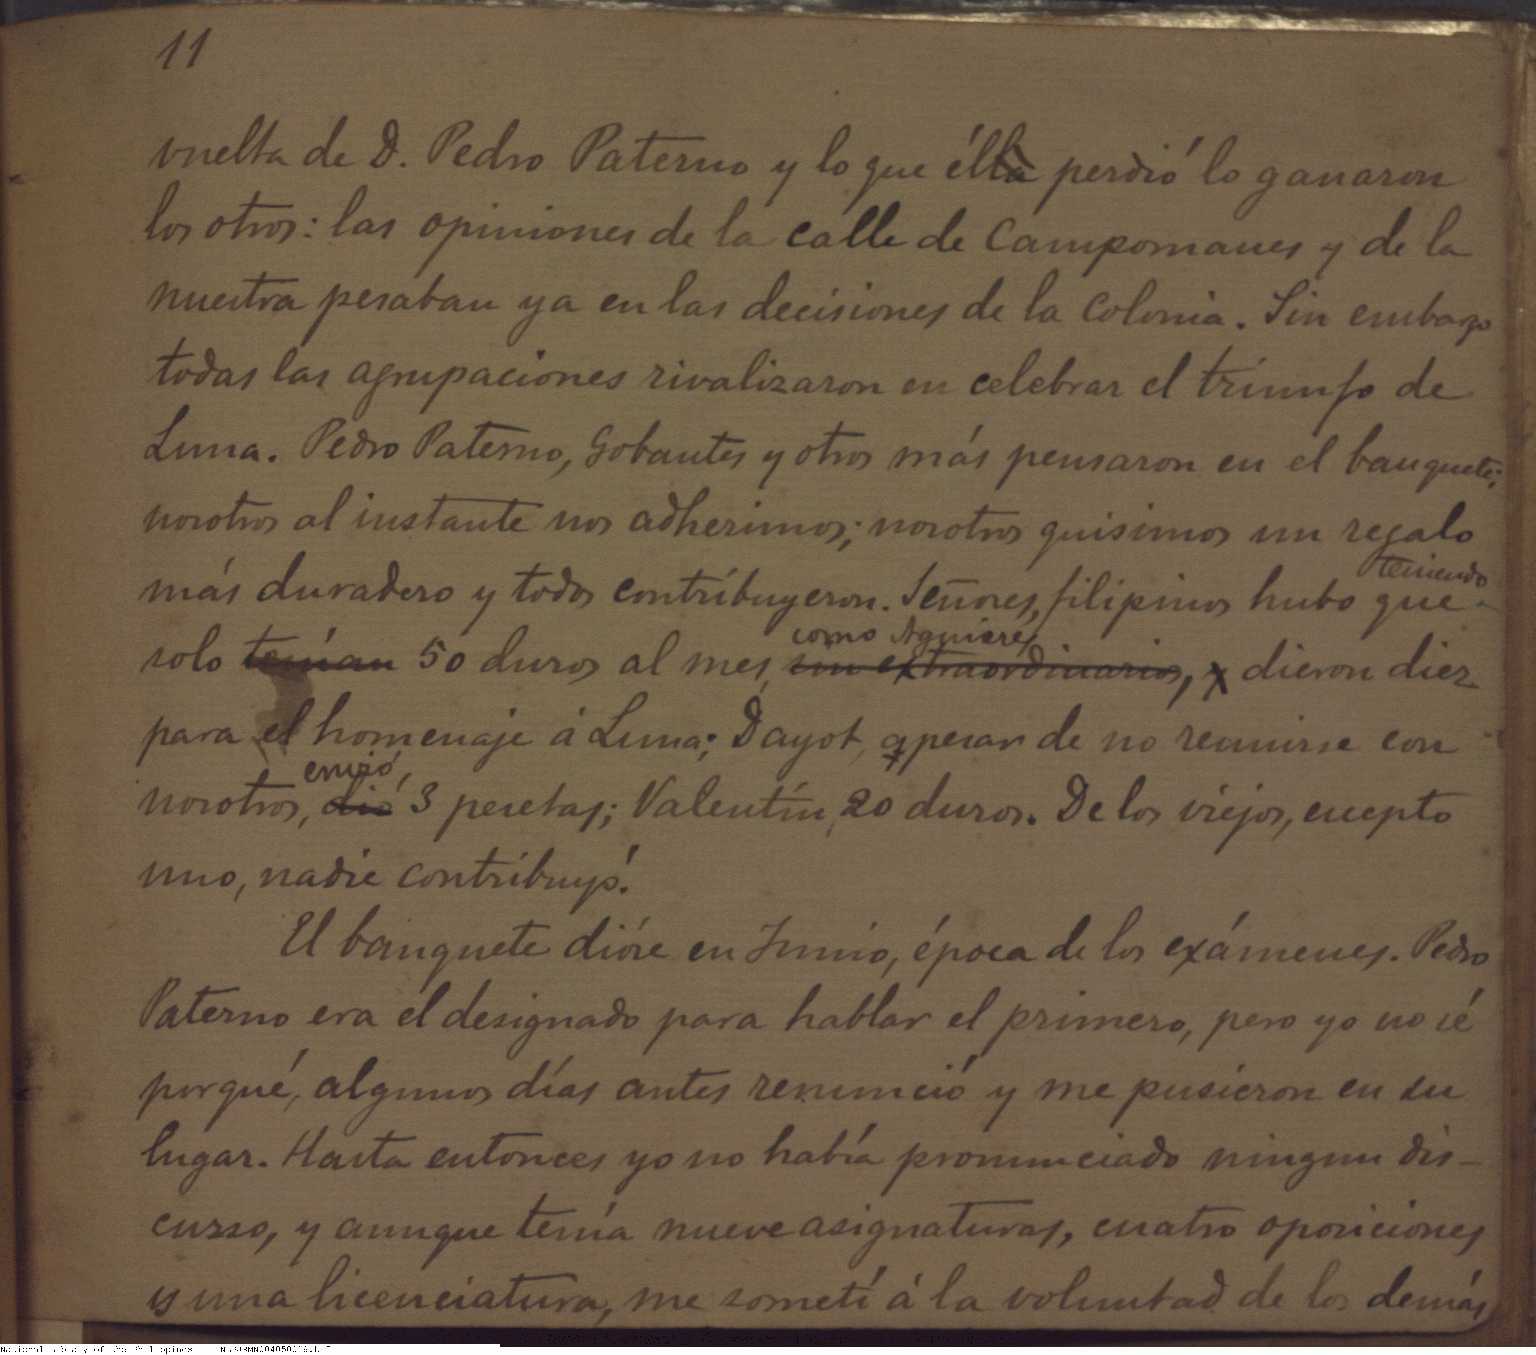 11
vuelta de D. Pedro Paterno y lo que élla perdió lo ganaron
los otros: las opiniones de la calle de Campomanes y de la
nuestra pesaban ya en las decisiones de la Colonia. Sin embago
todas las agrupaciones rivalizaron en celebrar el triunfo de
Luna. Pedro Paterno, Gobantes y otros más pensaron en el banquete;
nosotros al instante nos adherimos; nosotros quisimos un regalo
teniendo
más duradero y todos contribuyeron. Señores, filipinos hubo que
como Aguirre,
solo tenían 50 duros al mes, sin extraordinarios, y dieron diez
para el homenaje á Luna; Dayot, apesar de no reunirse con
envió,
nosotros, dió 3 pesetas; Valentín, 20 duros. De los viejos, excepto
uno, nadie contribuyó.
El banquete dióse en Junio, época de los exámenes. Pedro
Paterno era el designado para hablar el primero, pero yo no sé
porqué, algunos días antes renunció y me pusieron en su
lugar. Hasta entonces yo no había pronunciado ningun dis-
curso, y aunque tenía nueve asignaturas, cuatro oposiciones
y una licenciatura, me sometí á la voluntad de los demás
National Library of the Philippines